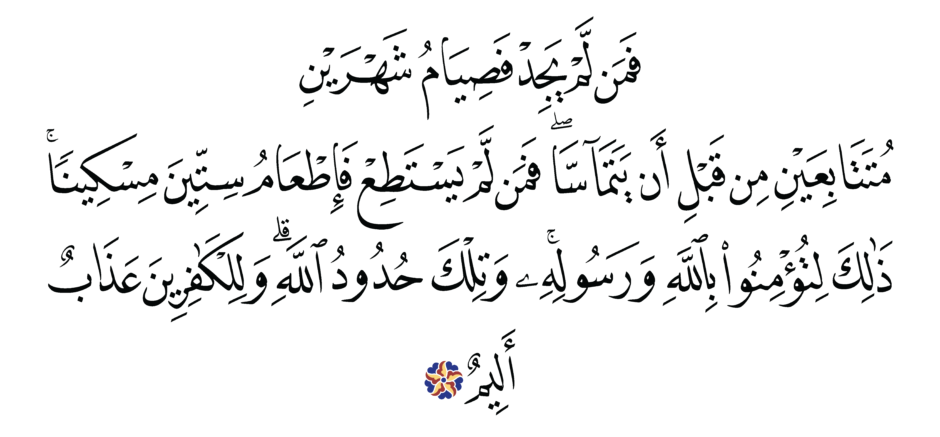 فَمَن لَّمْ يَجِدْ فَصِيَامُ شَهْرَيْنِ
مُتَتَابِعَيْنِ مِن قَبْلِ أَن يَتَمَآسَّاۖ فَمَن لَّمْ يَسْتَطِعْ فَإِطْعَامُ سِتِّينَ مِسْكِينًاۚ
ذَٰلِكَ لِتُؤْمِنُوا۟ بِٱللَّهِ وَرَسُولِهِۦۚ وَتِلْكَ حُدُودُ ٱللَّهِۗ وَلِلْكَٰفِرِينَ عَذَابٌ
أَلِيمٌ